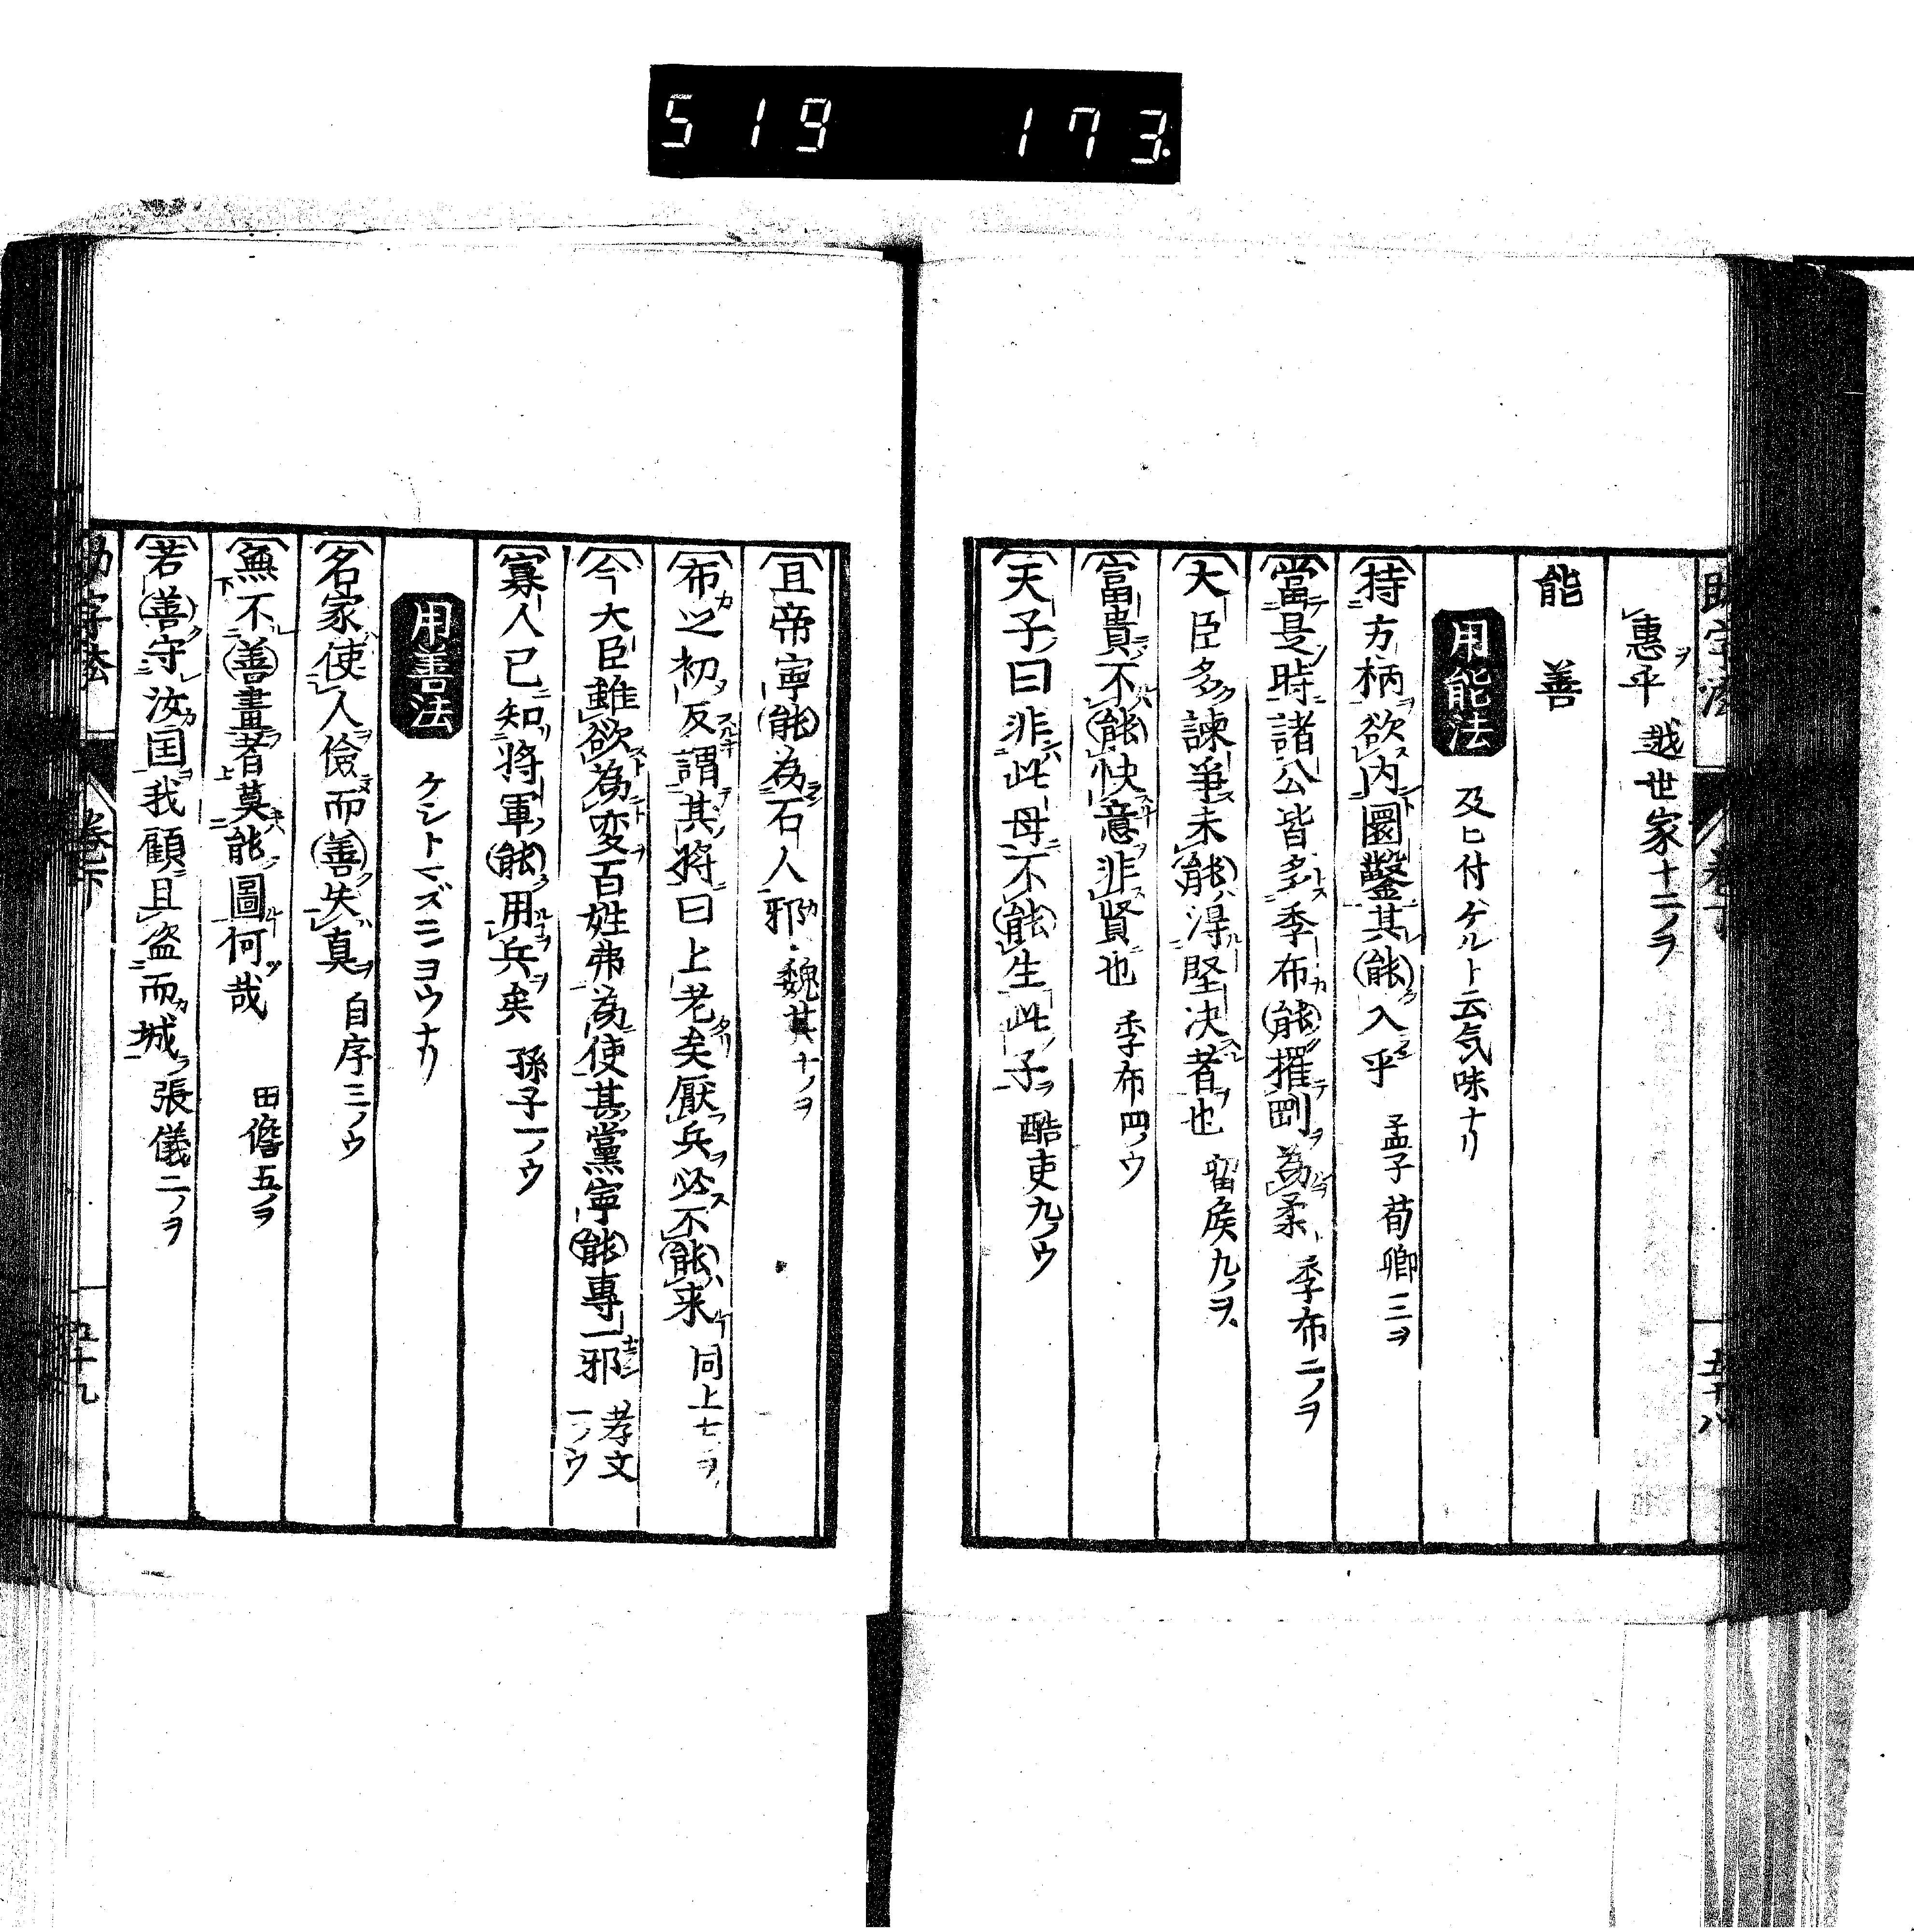 519 173.
助字法 卷下 五十八
惠乎 越世家十二ノヲ
能 善
用能法 及ヒ付ケルト云気味ナリ
持方柄欲内圜鑿其能入乎 孟子荀卿三ヲ
當是時諸公皆多季布能摧剛為柔 季布二ノヲ
大臣多諫爭未能得堅决者也 畱侯九ノヲ
富貴不能快意非賢也 季布四ノウ
天子曰非此母不能生此子 酷吏九ノウ
且帝寧能為石人邪 魏其十ノヲ
布之初反謂其将曰上老矣厭兵必不能来 同上七ヲ
今大臣雖欲為変百姓弗為使其黨寧能專一邪 孝文一ノウ
寡人已知将軍能用兵矣 孫子一ノウ
用善法 ケシトマズニヨウナリ
名家使人儉而善失真 自序三ノウ
無不善畫者莫能圖何哉 田儋五ノヲ
若善守汝国我顧且盗而城 張儀二ノヲ
助字法 卷下 五十九